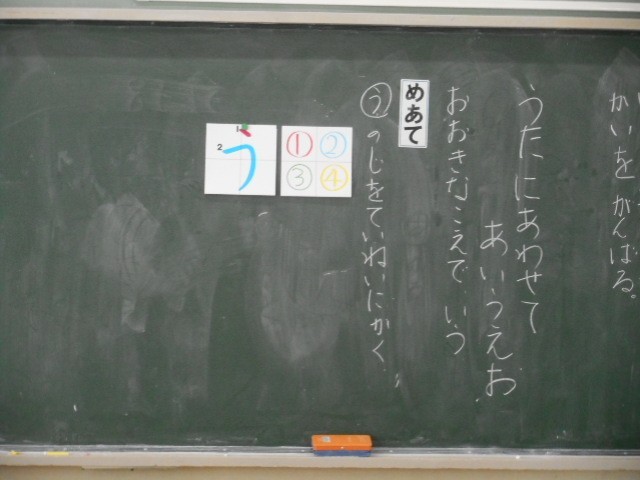 かいをがんばる。
うたにあわせて
あいうえお
おおきなこえでいう
めあて
うのじをていねいにかく
1
2
う
① ②
③ ④